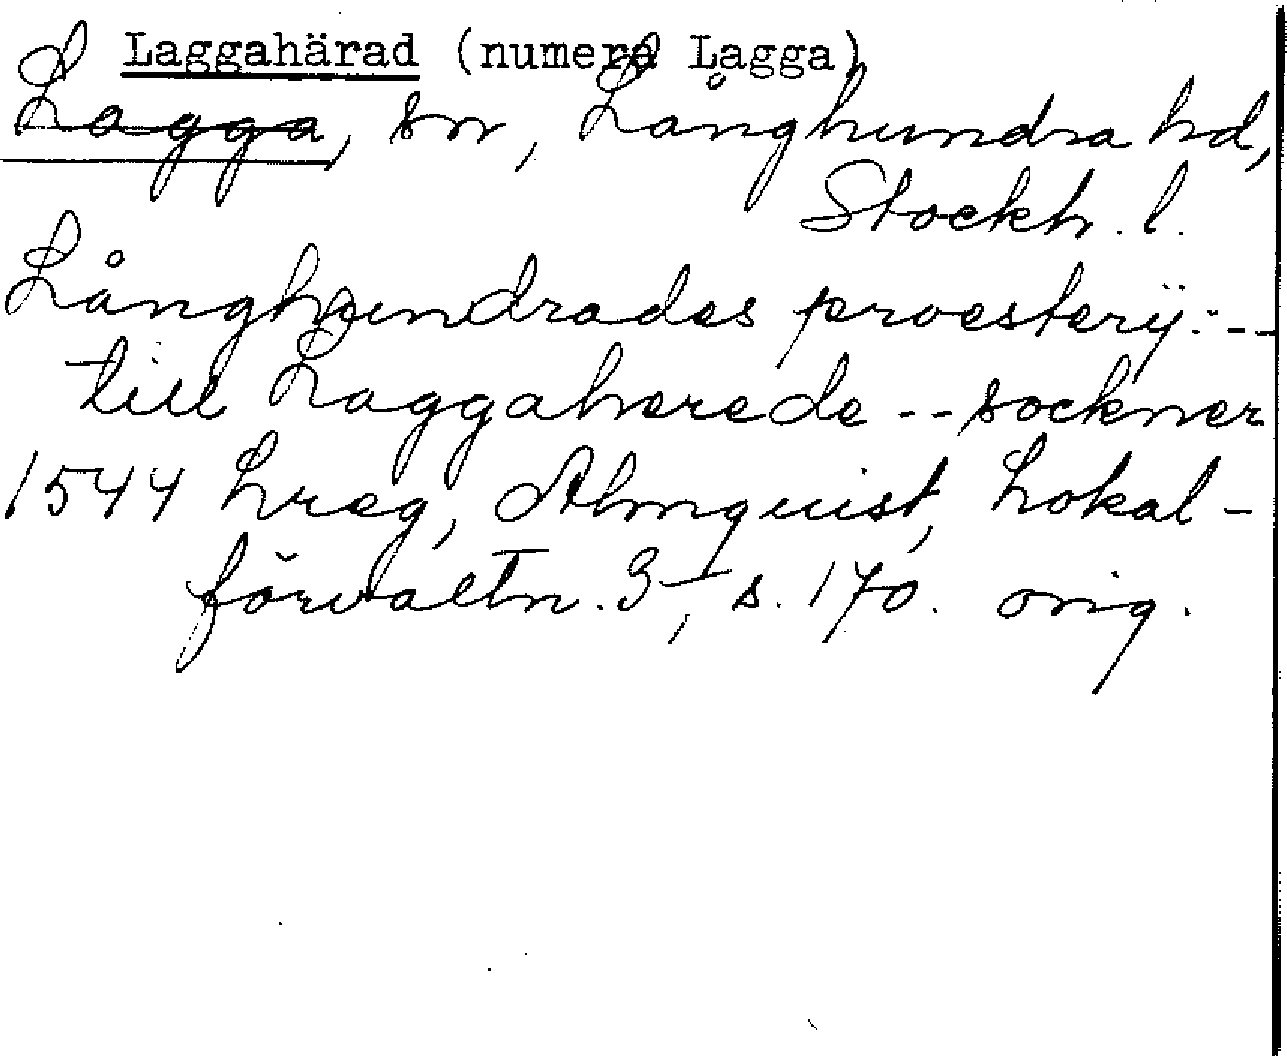 Laggahärad (numera Lagga)
Lagga, sn, Långhundra hd,
Stockh. l.
Långhundrades proesterij: --
till Laggaherede -- sockner
1544 hreg, Almquist, Lokal-
förvaltn. 3I, s. 170. orig.